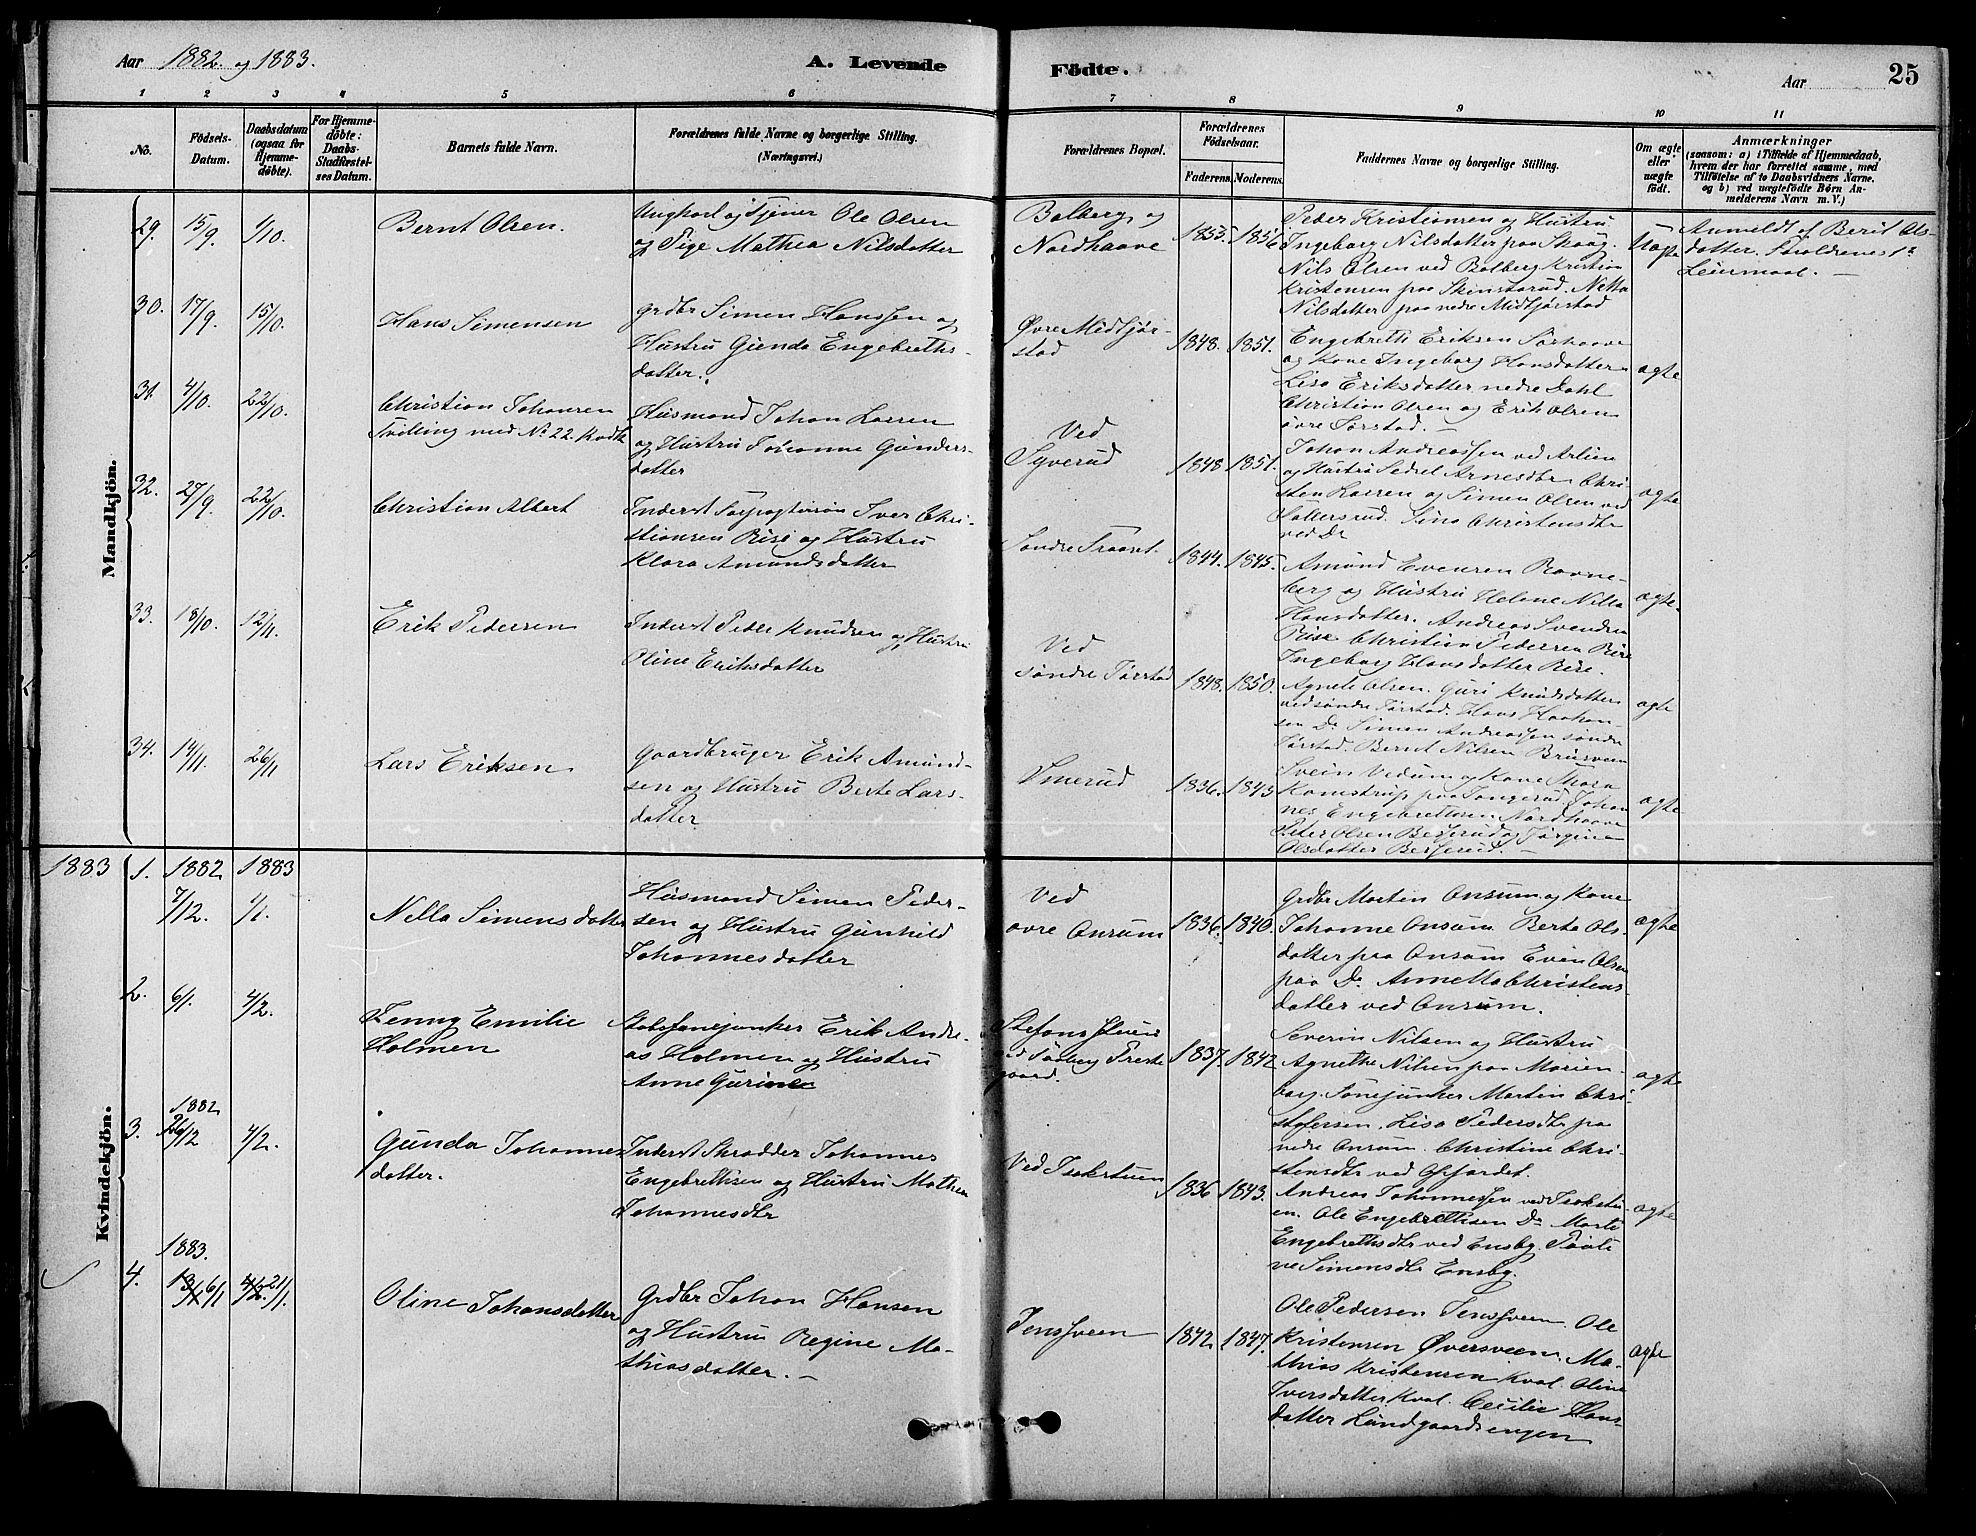 Aar 1882 og 1883.
A. Levende Födte.
Aar
25
1 2 3 4 5 6 7 8 9 10 11
No.
Födsels-
Datum.
Daabsdatum
(ogsaa for
Hjemme-
döbte).
For Hjemme-
döbte:
Daabs-
Stadfæstel-
ses Datum.
Barnets fulde Navn.
Forældrenes fulde Navne og borgerlige Stilling.
(Næringsvei.)
Forældrenes Bopæl.
Forældrenes
Födselsaar.
Faderens. Moderens.
Faddernes Navne og borgerlige Stilling.
Om ægte
eller
uægte
født.
Anmærkninger
(saasom: a) i Tilfælde af Hjemmedaab,
hvem der har forrettet samme, med
Tilföielse af to Daabsvidners Navne,
og b) ved uægtefödte Börn An-
melderens Navn m. V.)
Mandkjön.
29. 15/9 1/10. Bernt Olsen.
Ungkarl og Tjener Ole Olsen
og Pige Mathea Nilsdatter
Bolberg og
Nordhaave
1855. 1856
Peder Kristiansen og Hustru
Ingeborg Nilsdatter paa Skaag.
Nils Olsen ved Bolberg Kristian
Kristensen paa Skinstarud. Netta
Nilsdatter paa nedre Midtjørstad
Uægte
Anmeldt af Berit Ols-
datter. Forældrenes 1ste
Leiermaal. —
30. 17/9 15/10. Hans Simensen
Grdbr Simen Hanssen og
Hustru Gienda Engebreths-
datter.
Øvre Midtjør-
stad
1848. 1851.
Engebreth Eriksen Sørhaave
og Kone Ingeborg Hansdatter
Lisa Eriksdatter nedre Dahl
Christian Olsen og Erik Olsen
øvre Jørstad. —
ægte
31. 4/10. 22/10. Christian Johansen
Tvilling med No 22. Kvdk
Husmand Johan Larsen
og Hustru Johanne Gunders-
datter
Ved
Syverud
1848 1851.
Johan Andreassen ved Arline
og Hustru Sidsel Arnesdtr Chri-
sten Larsen og Simen Olsen ved
Sollersrud. Sina Christensdtr
ved Do
ægte
32. 27/9 22/10. Christian Albert
Inderst Iver Chri-
stiansen Riise og Hustru
Klara Amundsdatter
Søndre Traaset.
1844. 1845.
Amund Evensen Ravne-
berg og Hustru Helene Nilla
Hansdatter. Andreas Svendsen
Riise Christian Pedersen Riise
Ingeborg Hansdatter Riise.
ægte.
33. 18/10. 12/11. Erik Pedersen
Inderst Peder Knudsen og Hustru
Oline Eriksdatter
Ved
søndre Jørstad
1848. 1850.
Agnete Olsen. Guri Knudsdatter
ved søndre Jørstad. Hans Haakon-
sen Do Simen Andreassen søndre
Jørstad. Bernt Nilsen Brusveen
ægte
34. 14/11. 26/11 Lars Eriksen
Gaardbruger Erik Amund-
sen og Hustru Berte Lars-
datter
Smerud
1836. 1843
Svein Vedum og Kone Thora
Kamstrup paa Tangerud. Johan-
nes Engebrethsen Nordhaave
Peter Olsen Besserud og Jørgine
Olsdatter Besserud. —
ægte
1883
Kvindekjön.
1. 1882 1883
7/12. 1/1. Nella Simensdatter
Husmand Simen Peder-
sen og Hustru Gunhild
Johannesdatter
Ved
øvre Onsum
1836. 1840.
Grdbr Morten Onsum og Kone
Johanne Onsum Berte Ols-
datter paa Onsum Even Olsen
paa Do Annetta Christens-
datter ved Onsum.
ægte
2. 6/1. 4/2. Jenny Emilie
Holmen
Stabsfanejunker Erik Andre-
as Holmen og Hustru
Anne Gurine
Stefans
ved Faaberg Preste-
gaard.
1837. 1842
Severin Nilsen og Hustru
Agnethe Nilsen paa Marien-
borg. Fanejunker Martin Chri-
stofersen. Lisa Pedersdtr paa
nedre Onsum. Christine Chri-
stensdtr ved Offjordet.
ægte
3. 1882
26/12 4/2. Gunda Johannes-
datter.
Inderst Skrædder Johannes
Engebrethsen og Hustru Mathea
Johannesdtr
Ved Isakstuen
1836 1843.
Andreas Johannessen ved Isakstu-
en. Ole Engebrethsen Do Marte
Engebrethsdtr ved Ensby.
Simensdtr Ensby.
ægte
4. 1883.
6/1 21/1. Oline Johansdatter
Grdbr Johan Hansen
og Hustru Regine Ma-
thiasdatter. —
Jensveen
1842. 1847.
Ole Pedersen Jensveen Ole
Kristensen Øversveen. Ma-
thias Kristensen Kval. Oline
Iversdatter Kval. Cecilie Hans-
datter Lundgaardsengen
ægte